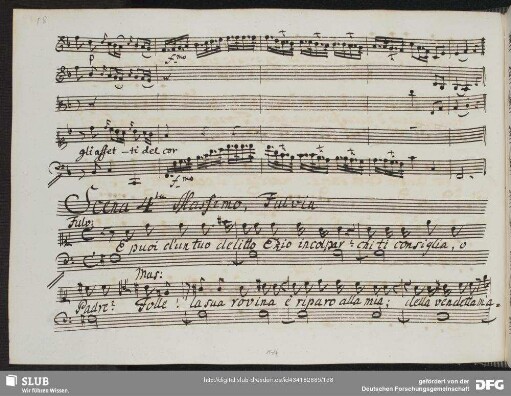 p
f.mo
gli affet - ti del cor
f.mo
Scena 4ta Massimo, Fulvia
Fulv:
E puoi d'un tuo delitto Ch'io incolpar: chi ti consiglia, o
Mas:
Padre? Folle! la sua rovina è riparo alla mia; della vendetta mia=
SLUB
Wir führen Wissen.
gefördert von der
Deutschen Forschungsgemeinschaft
DFG